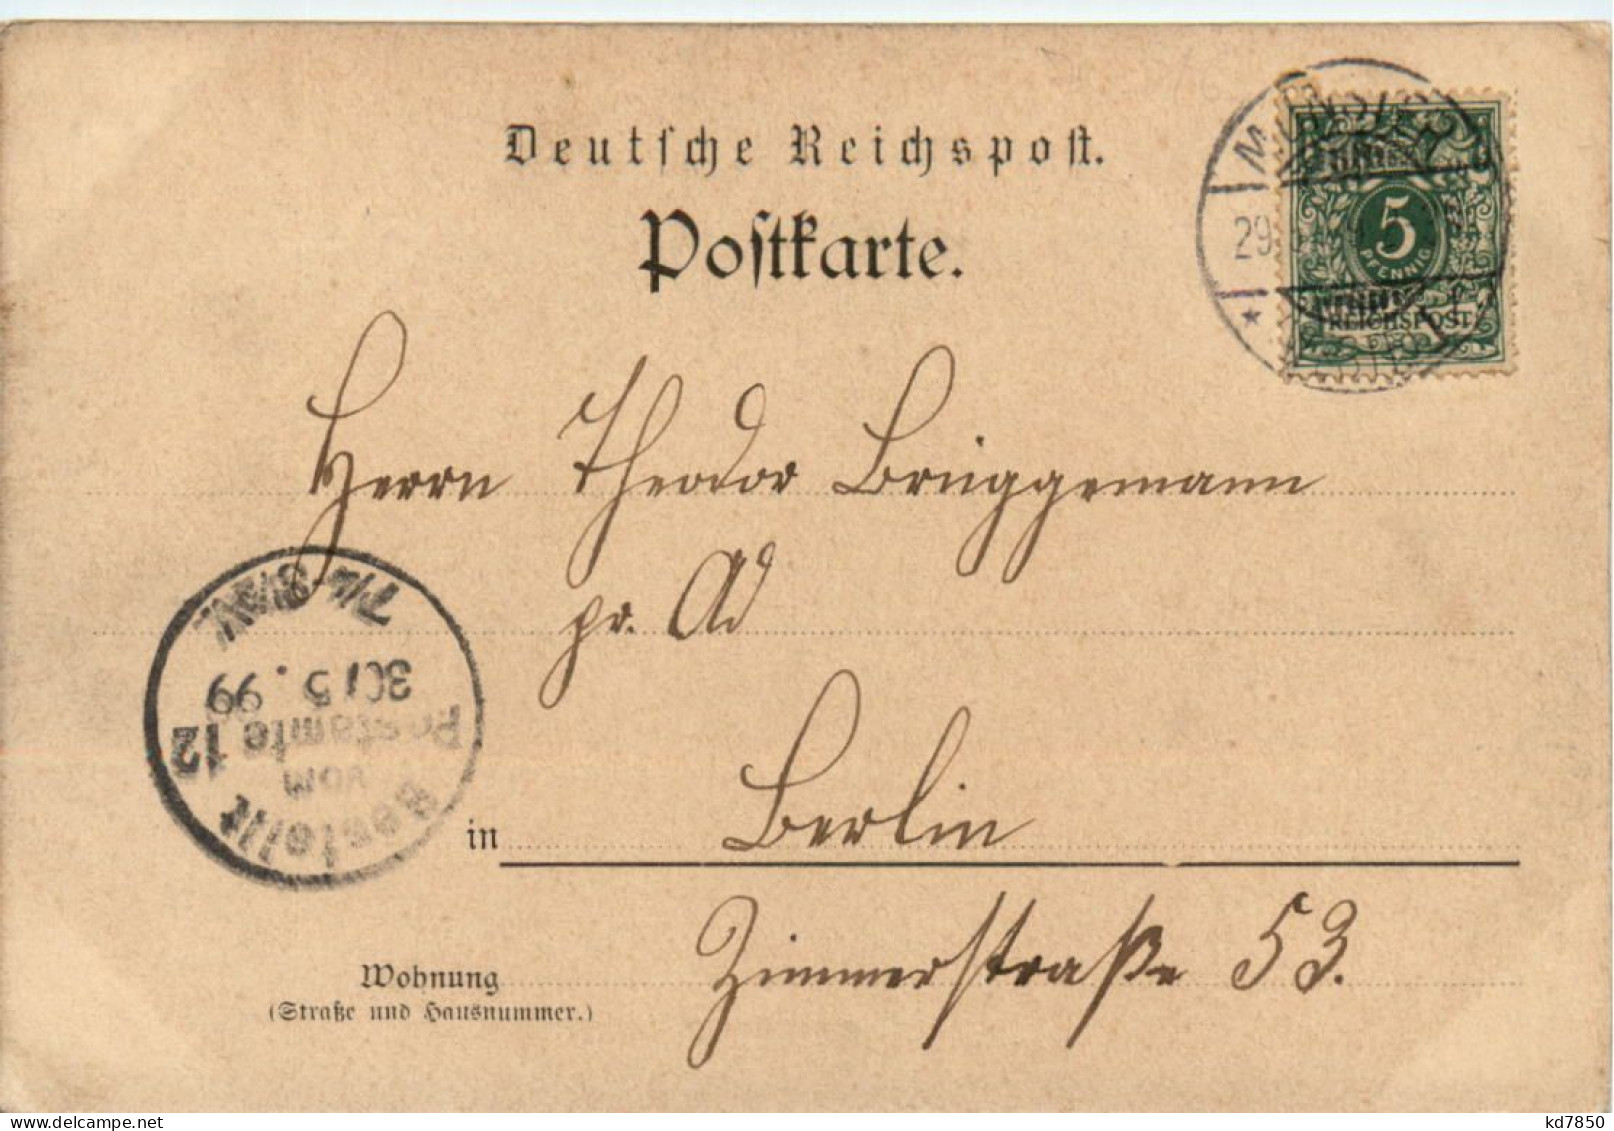 Deutsche Reichspost.
Postkarte.
29
5
PFENNIG
REICHSPOST
Herrn Theodor Brüggemann
pr. Ad
7½-8½N.
30/5.99
Postamte 12
vom
Bestellt
in Berlin
Zimmerstraße 53.
Wohnung
(Straße und Hausnummer.)
kd7850